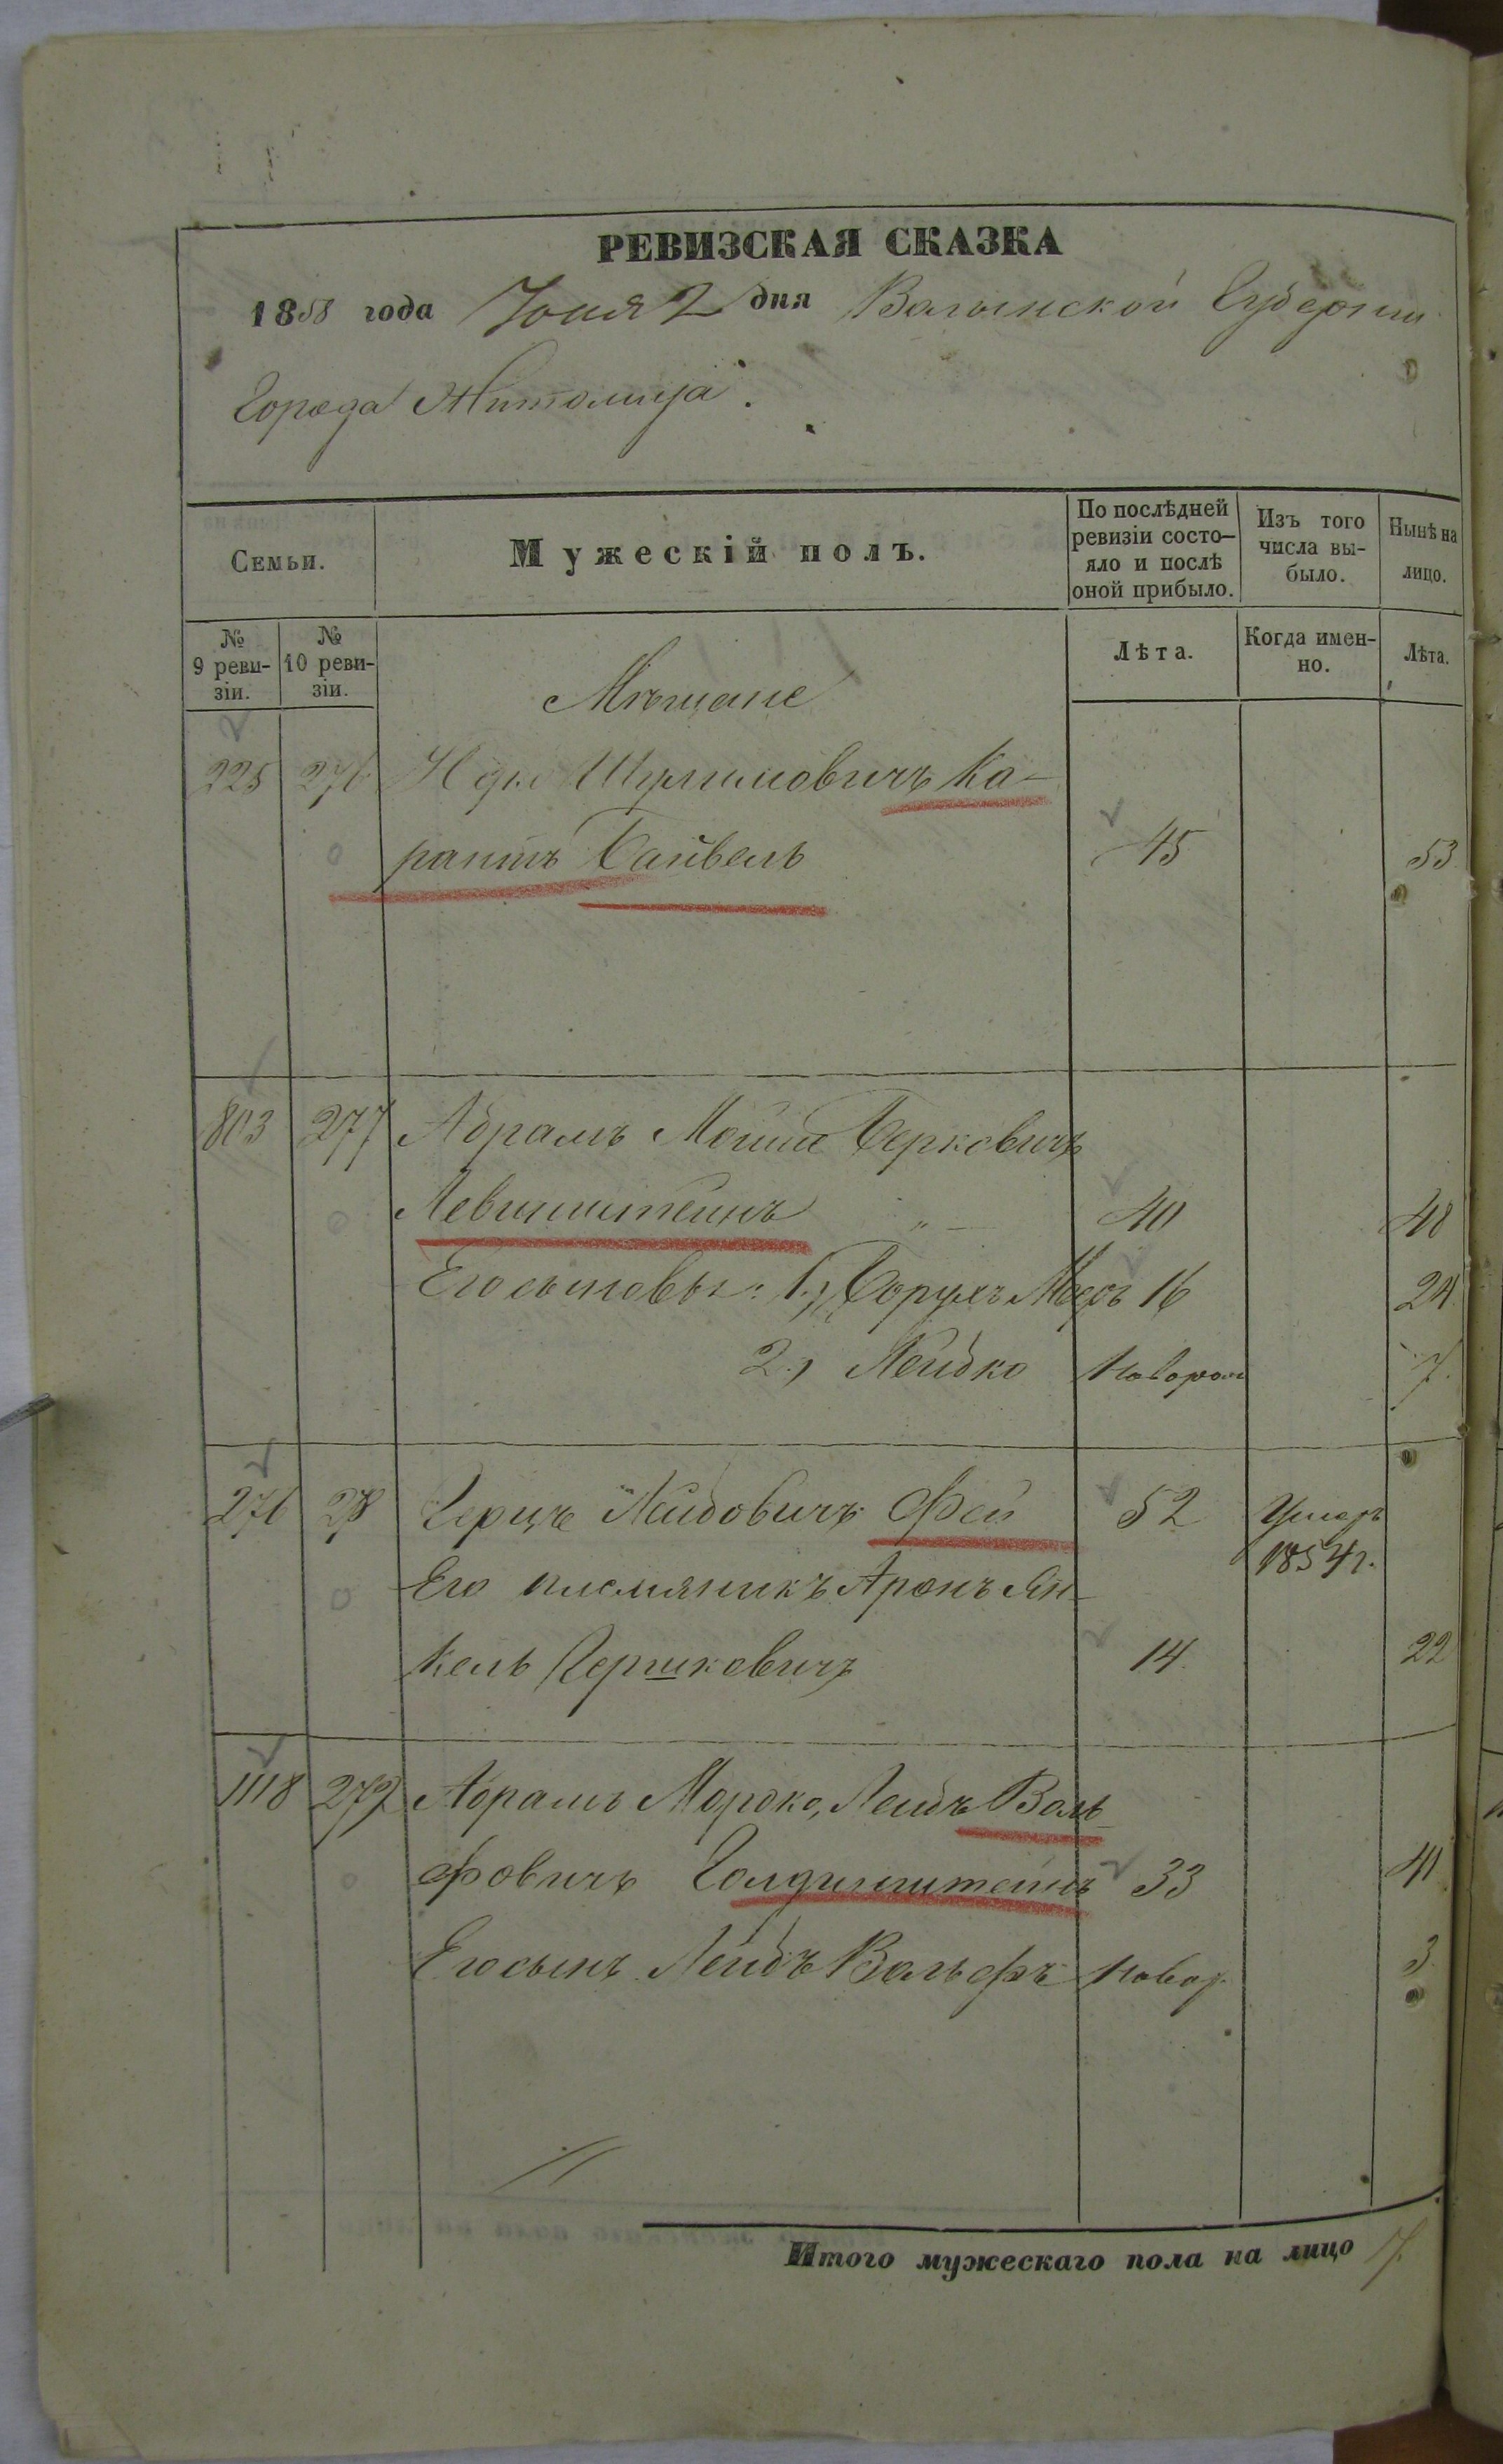 РЕВИЗСКАЯ СКАЗКА
1858 года Іюня 2 дня Волынской Губерніи
Города Житомира.
Семьи.
Мужескій полъ.
По послѣдней ревизіи состо-яло и послѣ оной прибыло.
Изъ того числа вы-было.
Нынѣ на лицо.
№ 9 реви-зіи.
№ 10 реви-зіи.
Лѣта.
Когда имен-но.
Лѣта.
Мѣщане
225 276 Шулимовичъ Ка-
рантъ Байвель 45 53
803 277 Абрамъ Мошко Берковичъ
Левинштейнъ „ — 40 48
Его сыновья: 1.) Борухъ Мееръ 16 24
2.) Лейбко Новорож 7.
276 278 Герцъ Лейбовичъ Фей 52 Умеръ
1854 г.
Его племяникъ Аронъ Ян-
кель Гершковичъ 14. 22
1118 279 Абрамъ Мордко, Лейбъ Воль-
фовичъ Голдинштейнъ 33 41
Его сынъ Лейбъ Вольфъ Новор. 3.
Итого мужескаго пола на лицо 7.